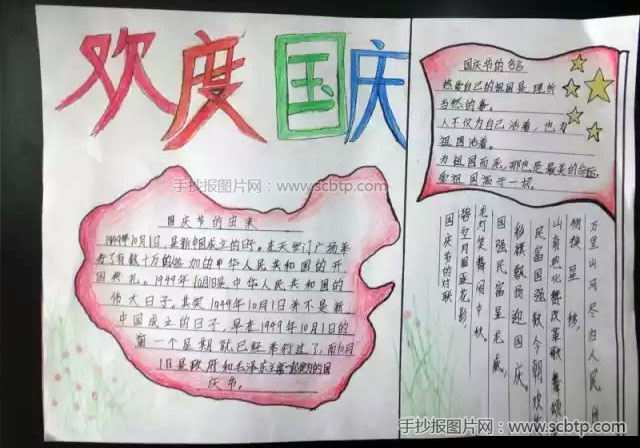 欢度国庆
国庆节的名言
热爱自己的祖国是理所
当然的事。
人不仅为自己活着，也为
祖国活着。
为祖国而死，那也是最美的命运
爱祖国高于一切
手抄报图片网：www.scbtp.com
国庆节的由来
1949年10月1日，是新中国成立的日子。在天安门广场举
行了有数十万的参加的中华人民共和国的开
国典礼。1949年10月1日是中华人民共和国的
伟大日子。其实1949年10月1日并不是新
中国成立的日子，早在1949年10月1日的
前一个星期就已经举行过了，而10月
1日是政府和毛泽东主席一起的国
庆节。
万里山河尽归人民
物换星移
山花舞改革歌春颂
民富国强欢今朝欢
彩旗飘扬迎国庆
国强民富呈龙威
龙灯笙舞闹中秋
空月圆花影
国庆节的对联
手抄报图片网：www.scbtp.com